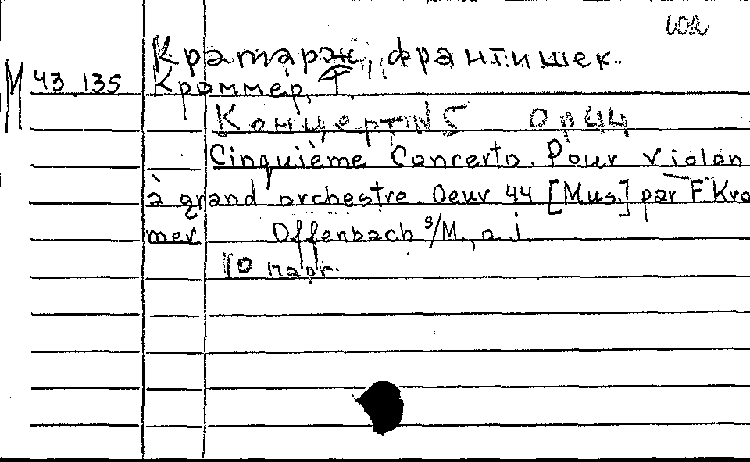 Крамарж, франтишек.
М 43 135 Краммер, Ф.
Концерт N 5 Op 44
Cinquième Concerto. Pour violon
à grand orchestre Oeuv 44 [Mus.] par F. Kro
mer Offenbach s/M., a. j.
10 парт.